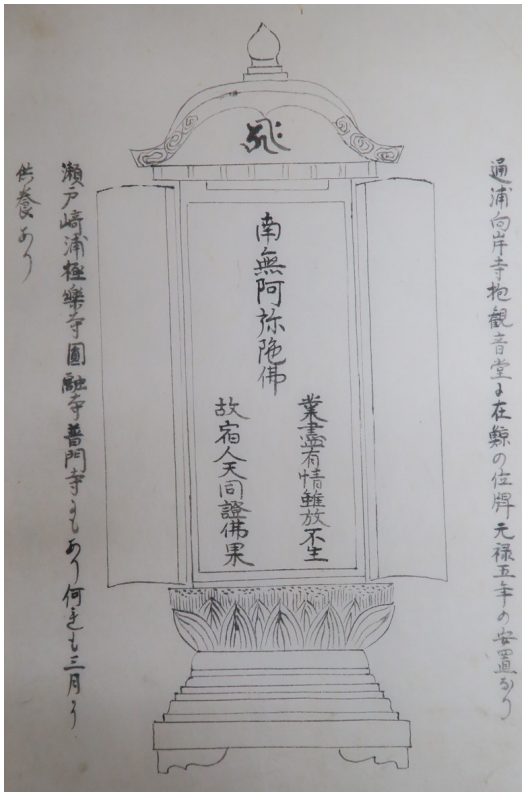 通浦向岸寺抱観音堂に在鯨の位牌元禄五年の安置なり
南無阿弥陀佛
業盡有情雖放不生
故宿人天同證佛果
瀬戸崎浦極樂寺圓融寺普門寺にもあり何も三月に
供養あり